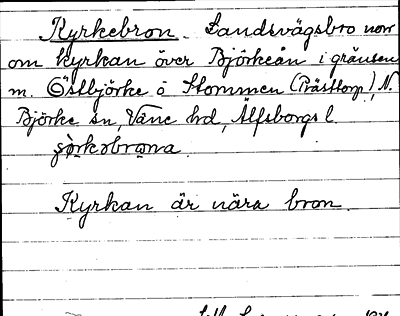 Kyrkebron. Landsvägsbro norr
om kyrkan över Björkeån i gränsen
m. Östbjörke o Stommen (Prästtorp), N.
Björke sn, Väne hd, Älfsborgs l.
Kyrkan är nära bron.